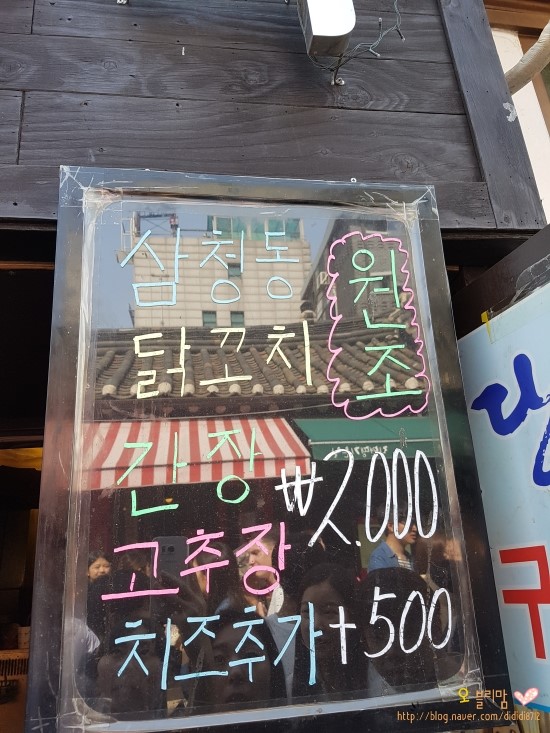 삼청동
닭꼬치
원조
간장
₩2.000
고추장
치즈추가+500
오블리맘
http://blog.naver.com/dididi8712